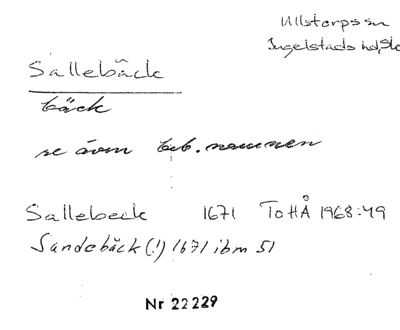 Ullstorps sn
Ingelstads hd, Sk
Sallebäck
bäck
se även beb. namnen
Sallebeck 1671 ToHÅ 1968:49
Sandebäck (!) 1671 ibm 51
Nr 22229